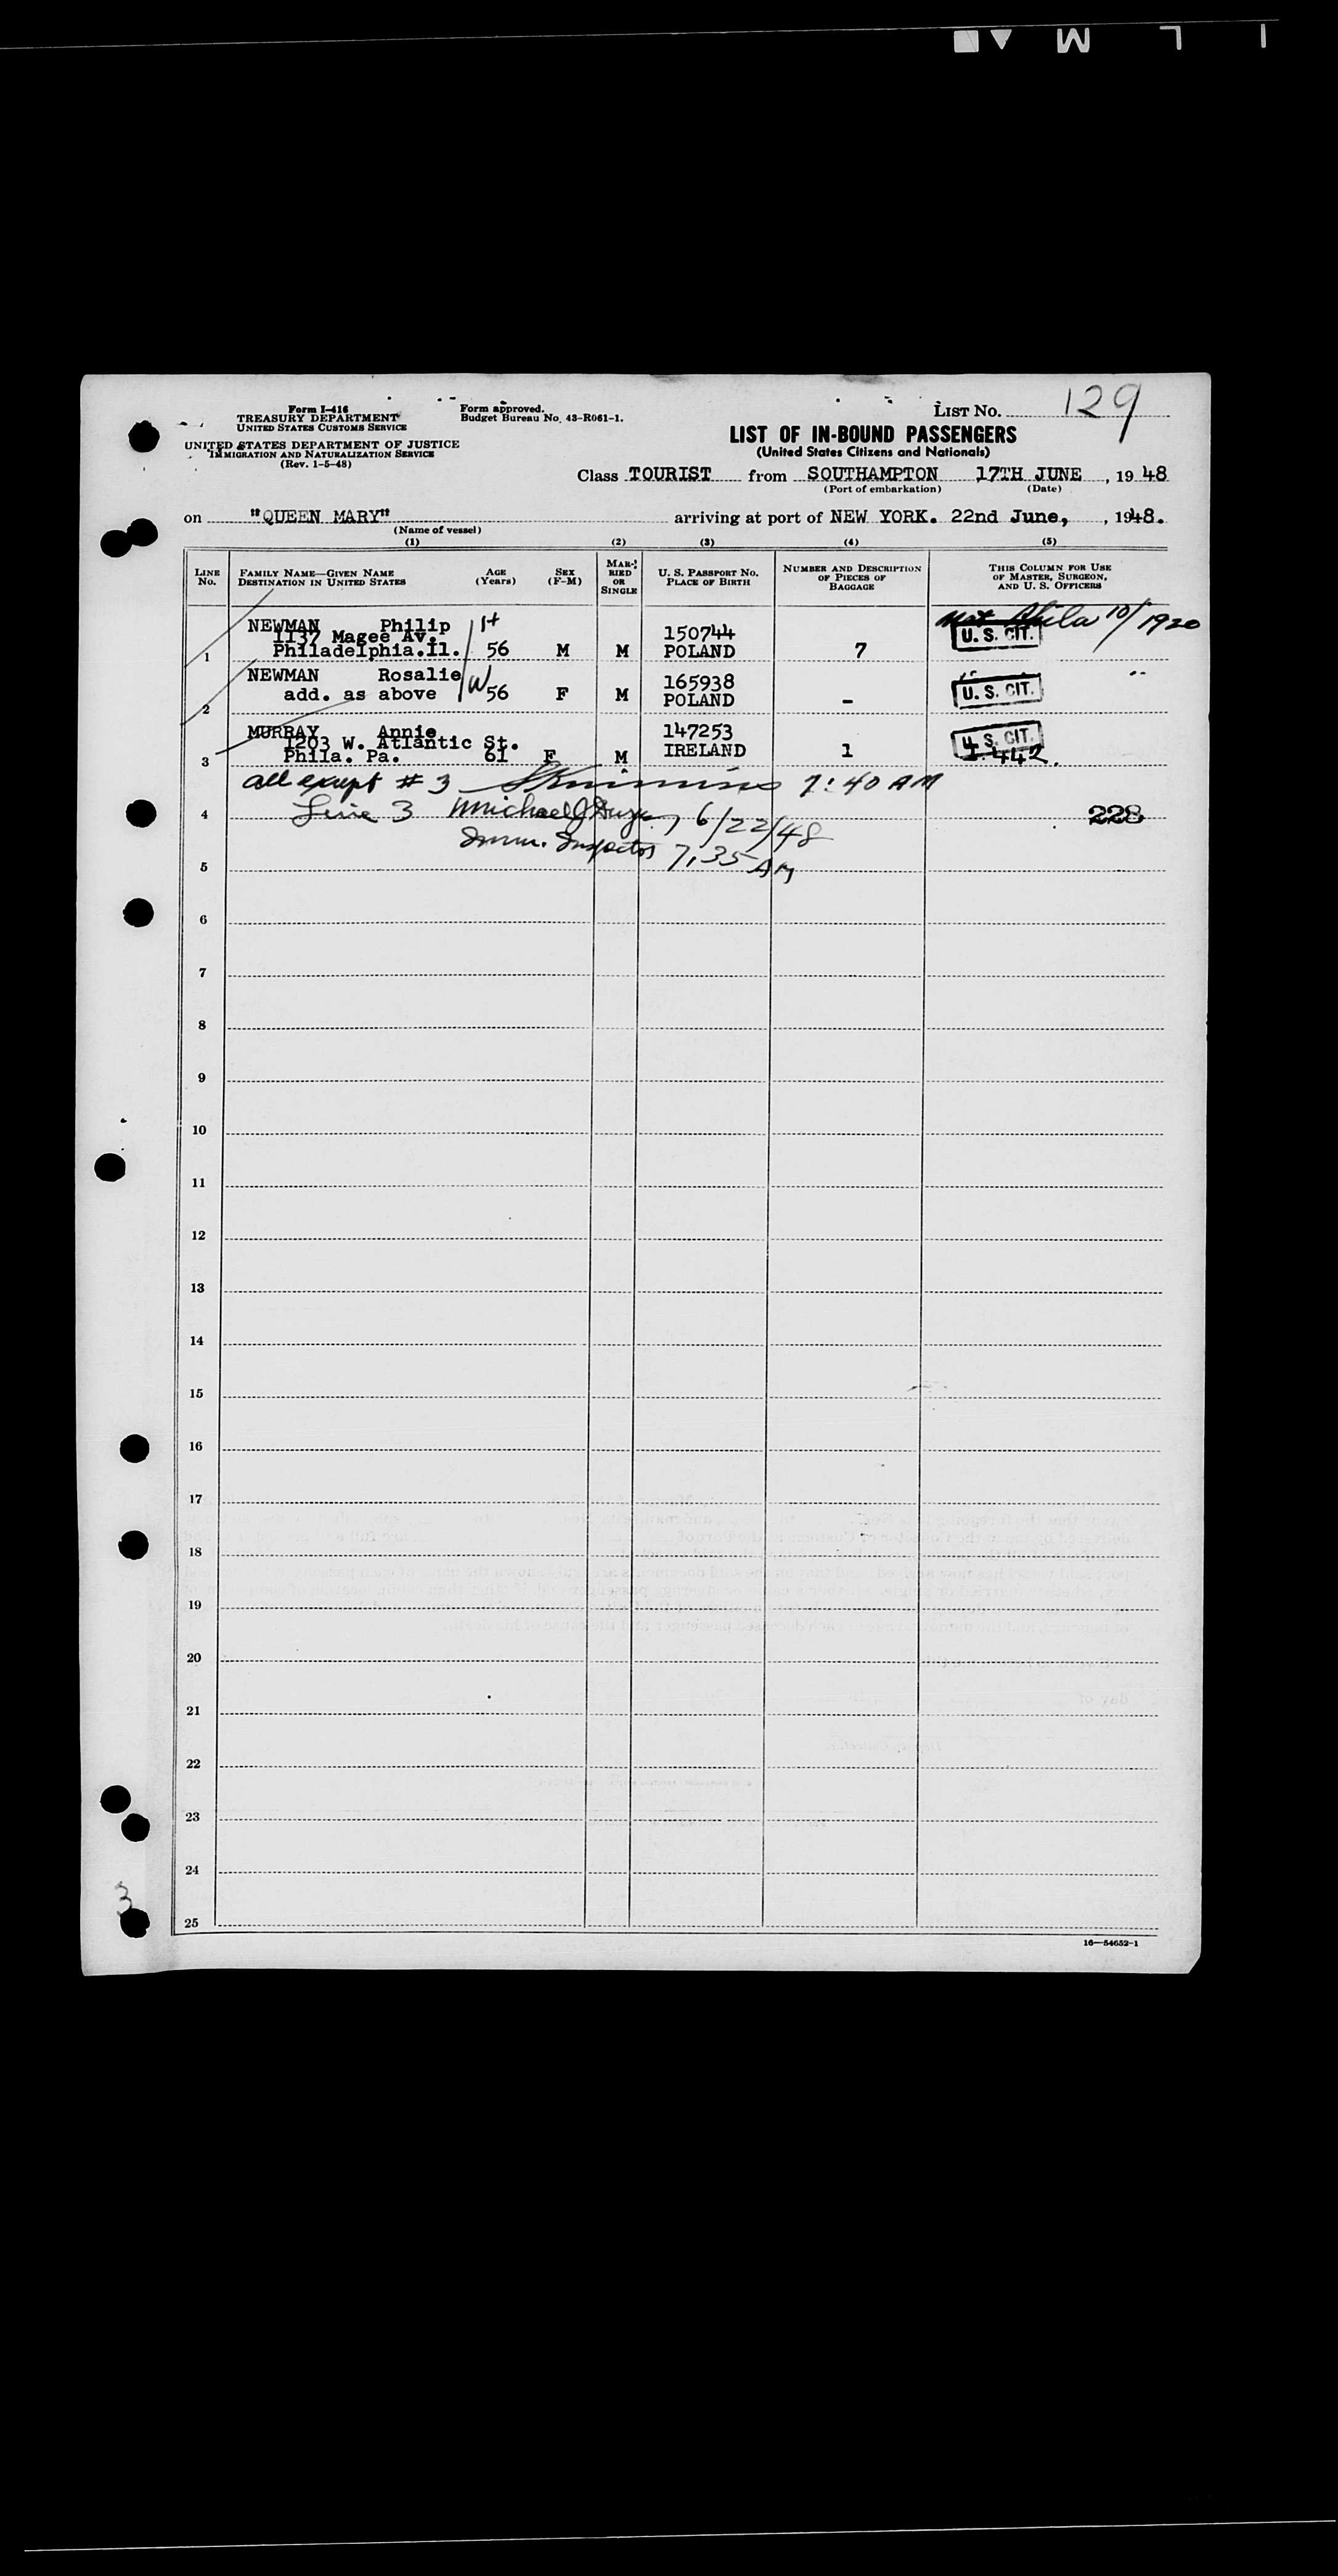 Form I-416
TREASURY DEPARTMENT
UNITED STATES CUSTOMS SERVICE
UNITED STATES DEPARTMENT OF JUSTICE
IMMIGRATION AND NATURALIZATION SERVICE
(Rev. 1-5-48)
Form approved.
Budget Bureau No. 43-R061-1.
LIST NO. 129
LIST OF IN-BOUND PASSENGERS
(United States Citizens and Nationals)
Class TOURIST from SOUTHAMPTON 17TH JUNE, 1948
(Port of embarkation) (Date)
on "QUEEN MARY" arriving at port of NEW YORK. 22nd June, , 1948.
(Name of vessel)
(1) (2) (3) (4) (5)
LINE NO.
FAMILY NAME—GIVEN NAME
DESTINATION IN UNITED STATES
AGE
(Years)
SEX
(F-M)
MARRIED
OR
SINGLE
U. S. PASSPORT NO.
PLACE OF BIRTH
NUMBER AND DESCRIPTION
OF PIECES OF
BAGGAGE
THIS COLUMN FOR USE
OF MASTER, SURGEON,
AND U. S. OFFICERS
NEWMAN Philip H
1137 Magee Av. 150744 U. S. CIT. Phila 10/1920
1 Philadelphia.Il. 56 M M POLAND 7
NEWMAN Rosalie W 165938 U. S. CIT. "
2 add. as above 56 F M POLAND -
MURRAY Annie 147253 U. S. CIT.
1203 W. Atlantic St. IRELAND 1 1.442.
3 Phila. Pa. 61 F M
all except # 3 7:40 AM
4 Line 3 Michael J 6/22/48 228
Imm. Inspector 7.35 AM
5
6
7
8
9
10
11
12
13
14
15
16
17
18
19
20
21
22
23
24
25
3
16—54652-1